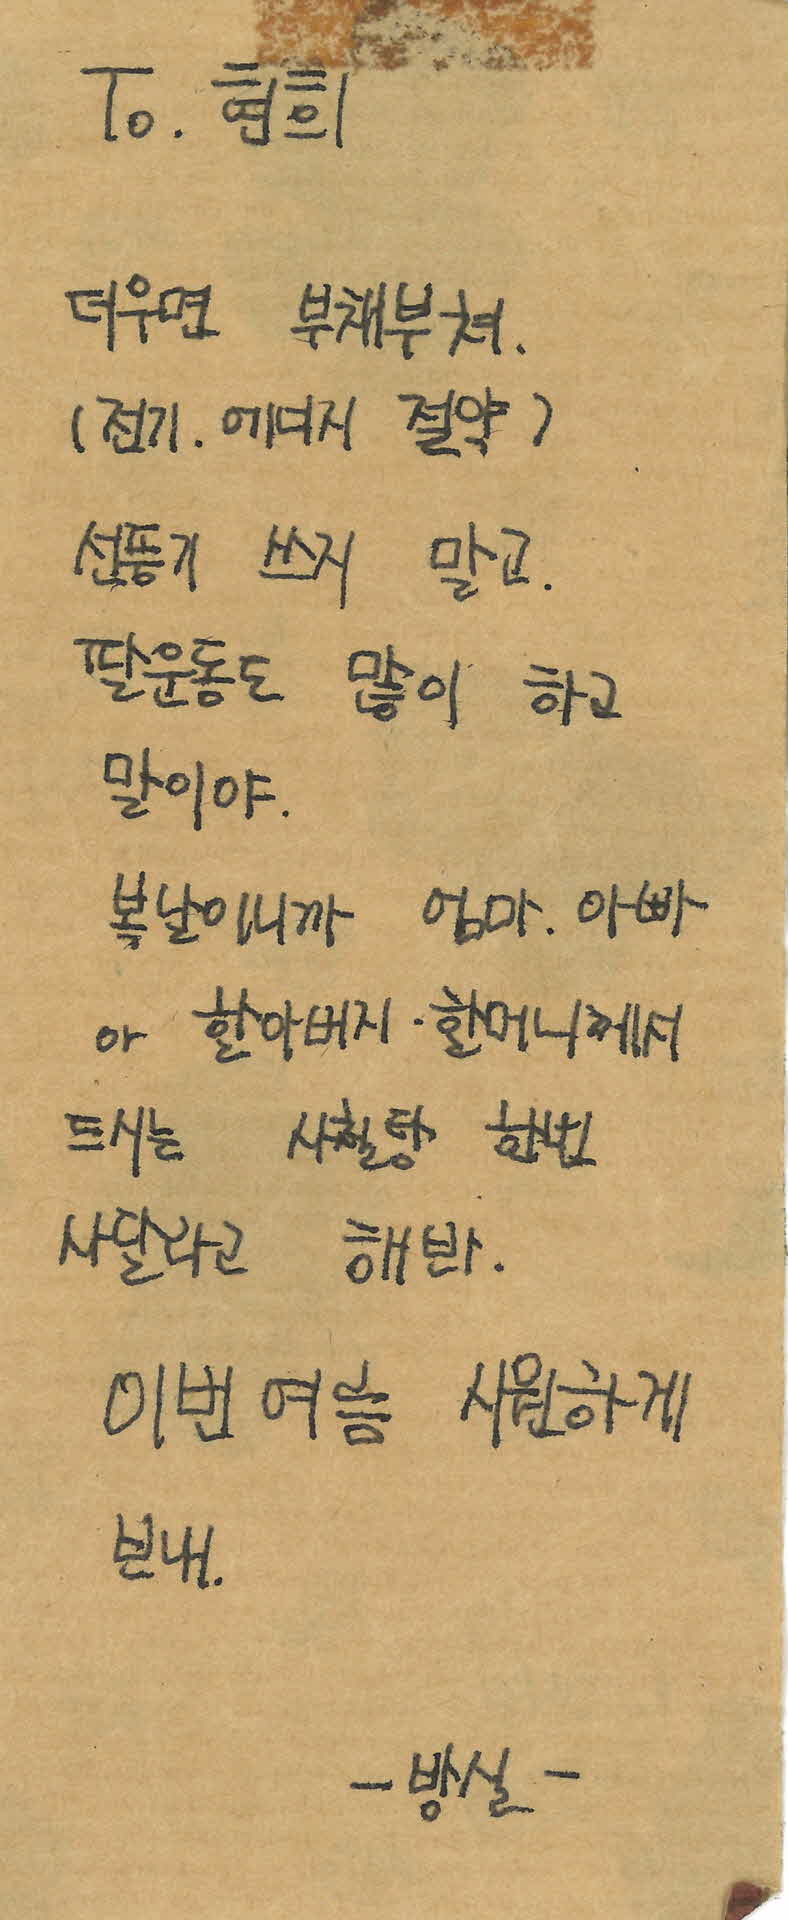 To. 현희
더우면 부채부쳐.
(전기. 에너지 절약)
선풍기 쓰지 말고.
팔운동도 많이 하고
말이야.
복날이니까 엄마. 아빠
아 할아버지·할머니께서
드시는 사철탕 한번
사달라고 해봐.
이번 여름 시원하게
보내.
- 방실 -